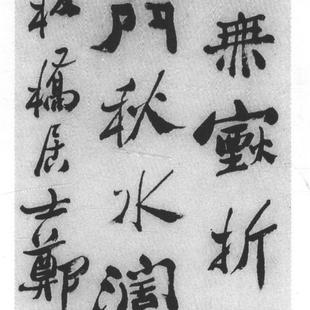 無折
門秋水濶
板橋居士鄭